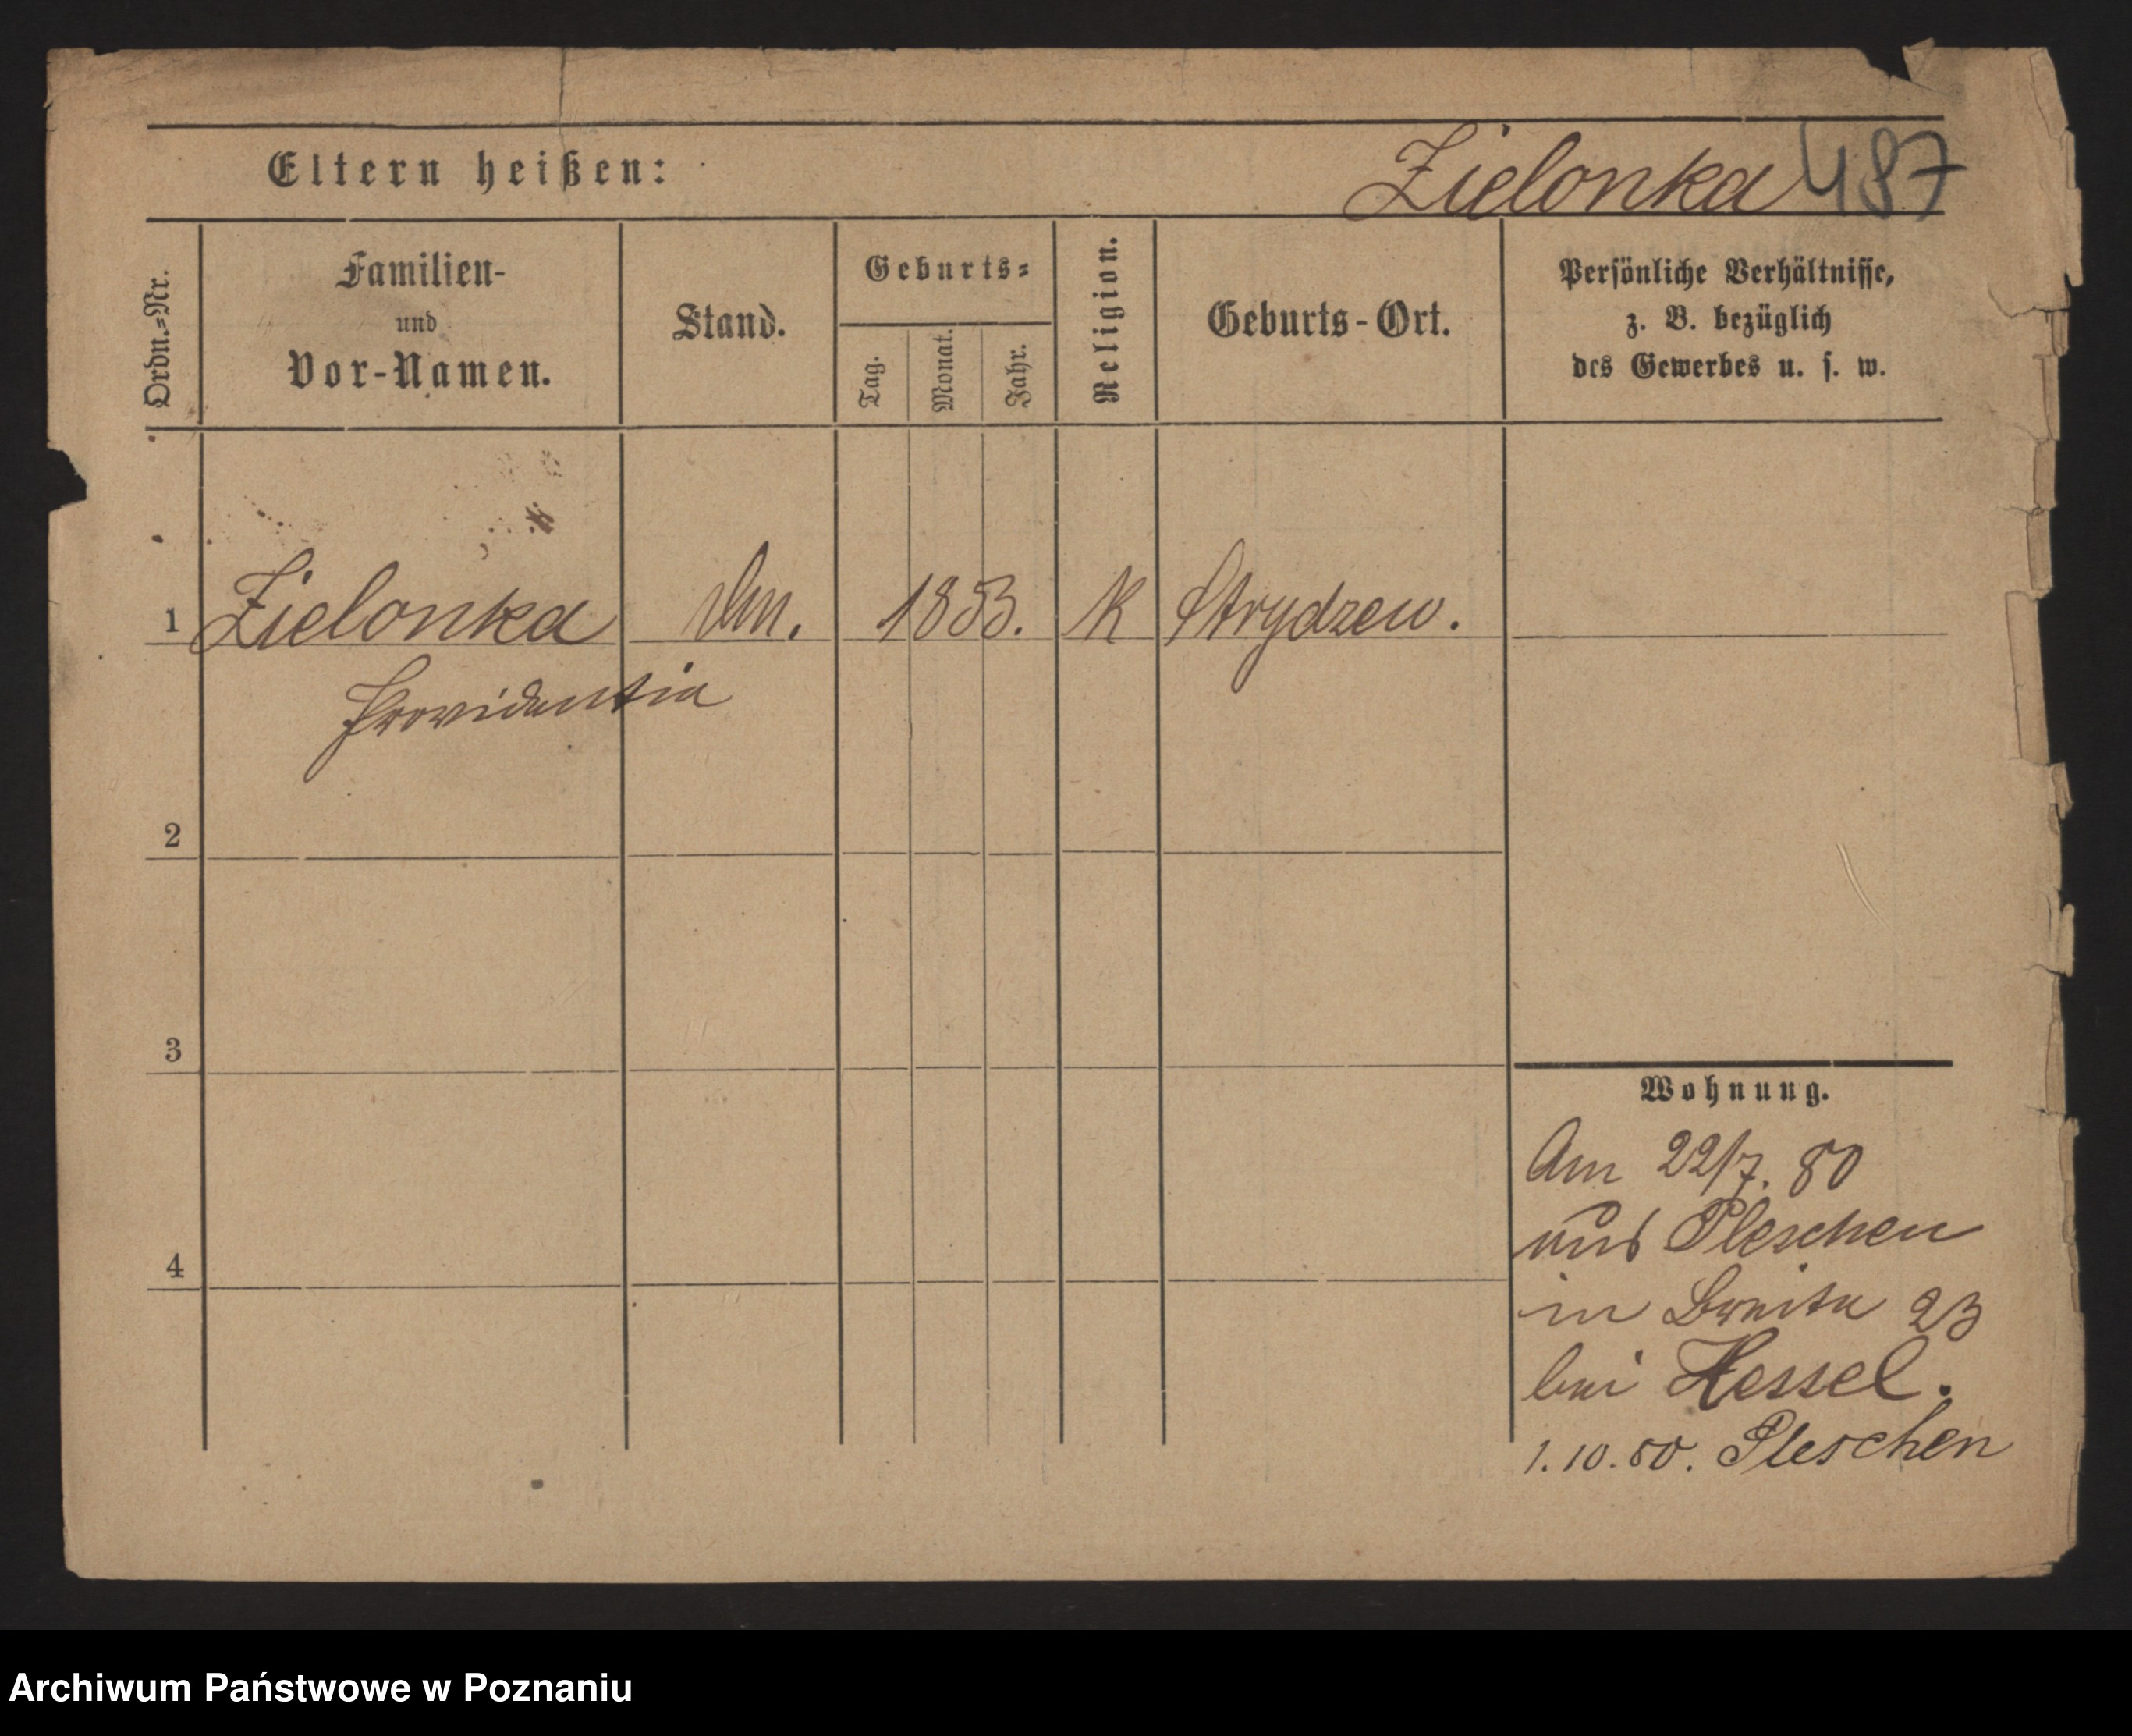 Eltern heißen:
Zielonka 487
Ordn.=Nr.
Familien-
und
Vor-Namen.
Stand.
Geburts=
Tag.
Monat.
Jahr.
Religion.
Geburts-Ort.
Persönliche Verhältnisse,
z. B. bezüglich
des Gewerbes u. s. w.
1 Zielonka 1853. K Strydzew.
Providentia
2
3
4
Wohnung.
Am 22/7. 80
aus Pleschen
in Breite 23
bei Hessel.
1.10.80. Pleschen
Archiwum Państwowe w Poznaniu